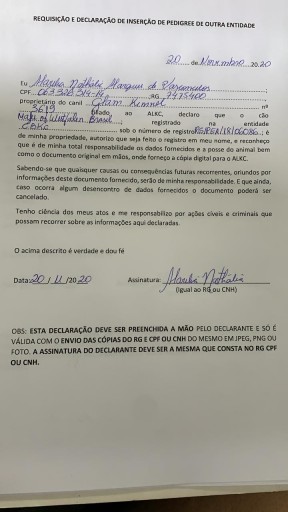 REQUISIÇÃO E DECLARAÇÃO DE INSERÇÃO DE PEDIGREE DE OUTRA ENTIDADE
20 de Novembro 2020
Eu Nathália Marques de Vasconcelos
CPF RG 2475400
proprietário do canil Glam Kennel nº
3619 filiado ao ALKC, declaro que o cão
Brasil registrado na entidade
CBKC sob o número de registro ; é
de minha propriedade, autorizo que seja feito o registro em meu nome, e reconheço
que é de minha total responsabilidade os dados fornecidos e a posse do animal bem
como o documento original em mãos, onde forneço a cópia digital para o ALKC.
Sabendo-se que quaisquer causas ou consequências futuras recorrentes, oriundos por
informações deste documento fornecido, serão de minha responsabilidade. E que ainda,
caso ocorra algum desencontro de dados fornecidos o documento poderá ser
cancelado.
Tenho ciência dos meus atos e me responsabilizo por ações cíveis e criminais que
possam recorrer sobre as informações aqui declaradas.
O acima descrito é verdade e dou fé
Data: 20 / 11 / 2020 Assinatura: Nathália
(igual ao RG ou CNH)
OBS: ESTA DECLARAÇÃO DEVE SER PREENCHIDA A MÃO PELO DECLARANTE E SÓ É
VÁLIDA COM O ENVIO DAS CÓPIAS DO RG E CPF OU CNH DO MESMO EM JPEG, PNG OU
FOTO. A ASSINATURA DO DECLARANTE DEVE SER A MESMA QUE CONSTA NO RG CPF
OU CNH.